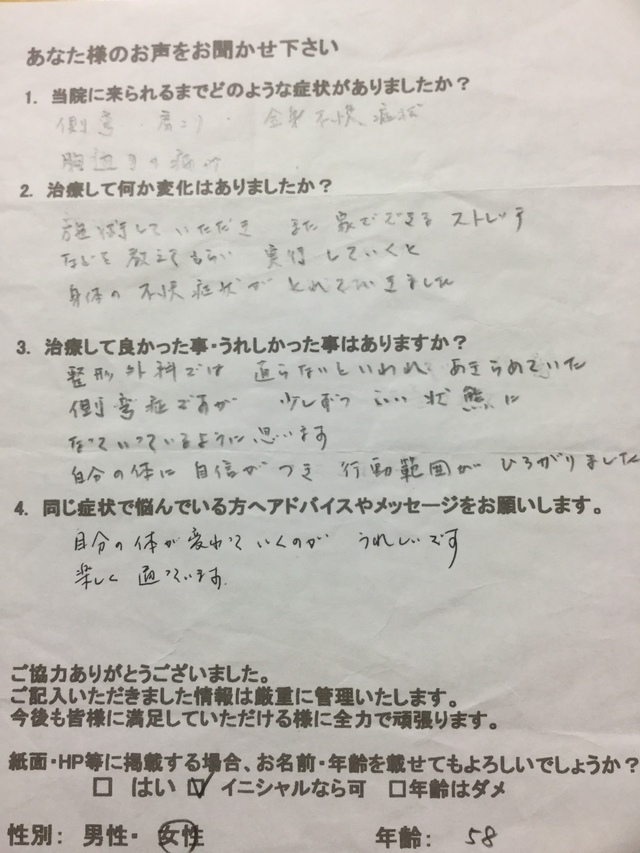 あなた様のお声をお聞かせ下さい
1. 当院に来られるまでどのような症状がありましたか？
側彎・肩こり・全身不快症状
胸辺りの痛み
2. 治療して何か変化はありましたか？
施術していただき また 家でできる ストレッチ
などを 教えてもらい 実行していくと
身体の 不快症状が とれていきました
3. 治療して良かった事・うれしかった事はありますか？
整形外科では 直らないといわれ あきらめていた
側彎症ですが 少しずつ いい状態に
なっていっているように思います
自分の体に 自信がつき 行動範囲が ひろがりました
4. 同じ症状で悩んでいる方へアドバイスやメッセージをお願いします。
自分の体が 変わって いくのが うれしいです
楽しく 通っています。
ご協力ありがとうございました。
ご記入いただきました情報は厳重に管理いたします。
今後も皆様に満足していただける様に全力で頑張ります。
紙面・HP等に掲載する場合、お名前・年齢を載せてもよろしいでしょうか？
□ はい ☑ イニシャルなら可 □年齢はダメ
性別： 男性・ 女性 年齢： 58